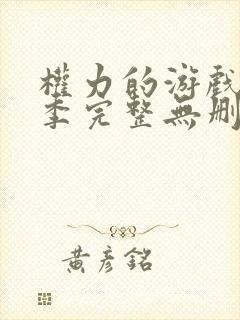 權力的游戲
季完整無刪
黃彥銘